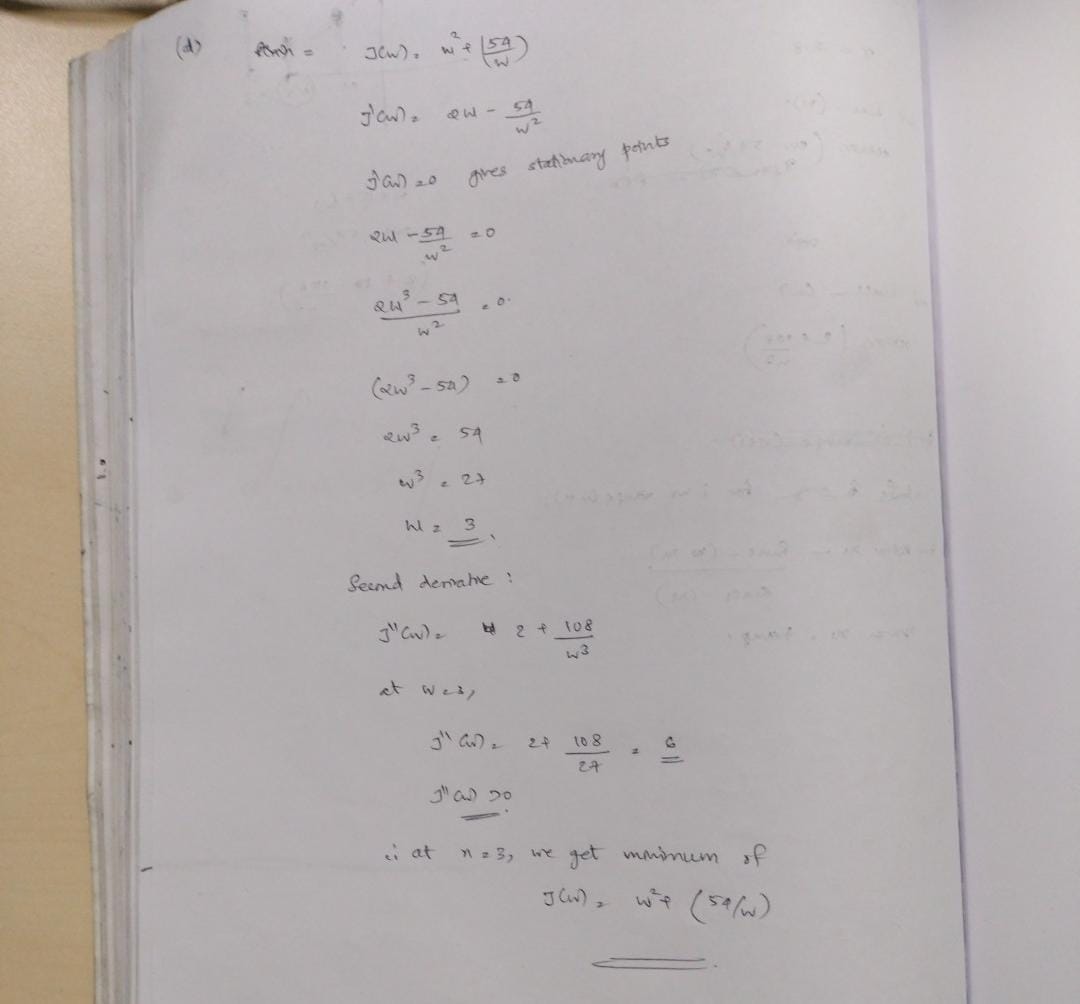 (d) = J(w) = w² + (54/w)
J'(w) = 2w - 54/w²
J'(w) = 0 gives stationary points
2w - 54/w² = 0
(2w³ - 54)/w² = 0.
(2w³ - 54) = 0
2w³ = 54
w³ = 27
w = 3
Second derivative :
J''(w) = 2 + 108/w³
at w=3,
J''(w) = 2+ 108/27 = 6
J''(w) >0.
∴ at n=3, we get minimum of
J(w) = w² + (54/w)